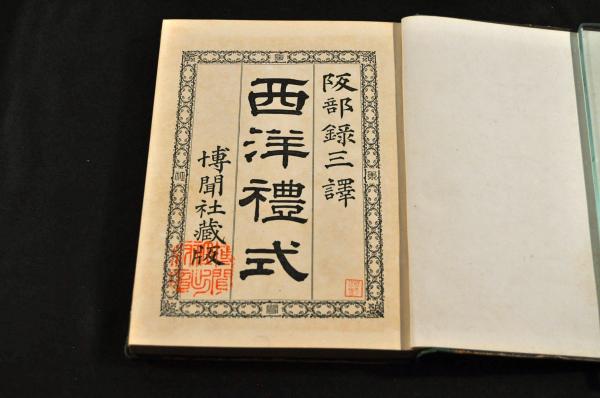 阪部錄三譯
西洋禮式
博聞社藏版